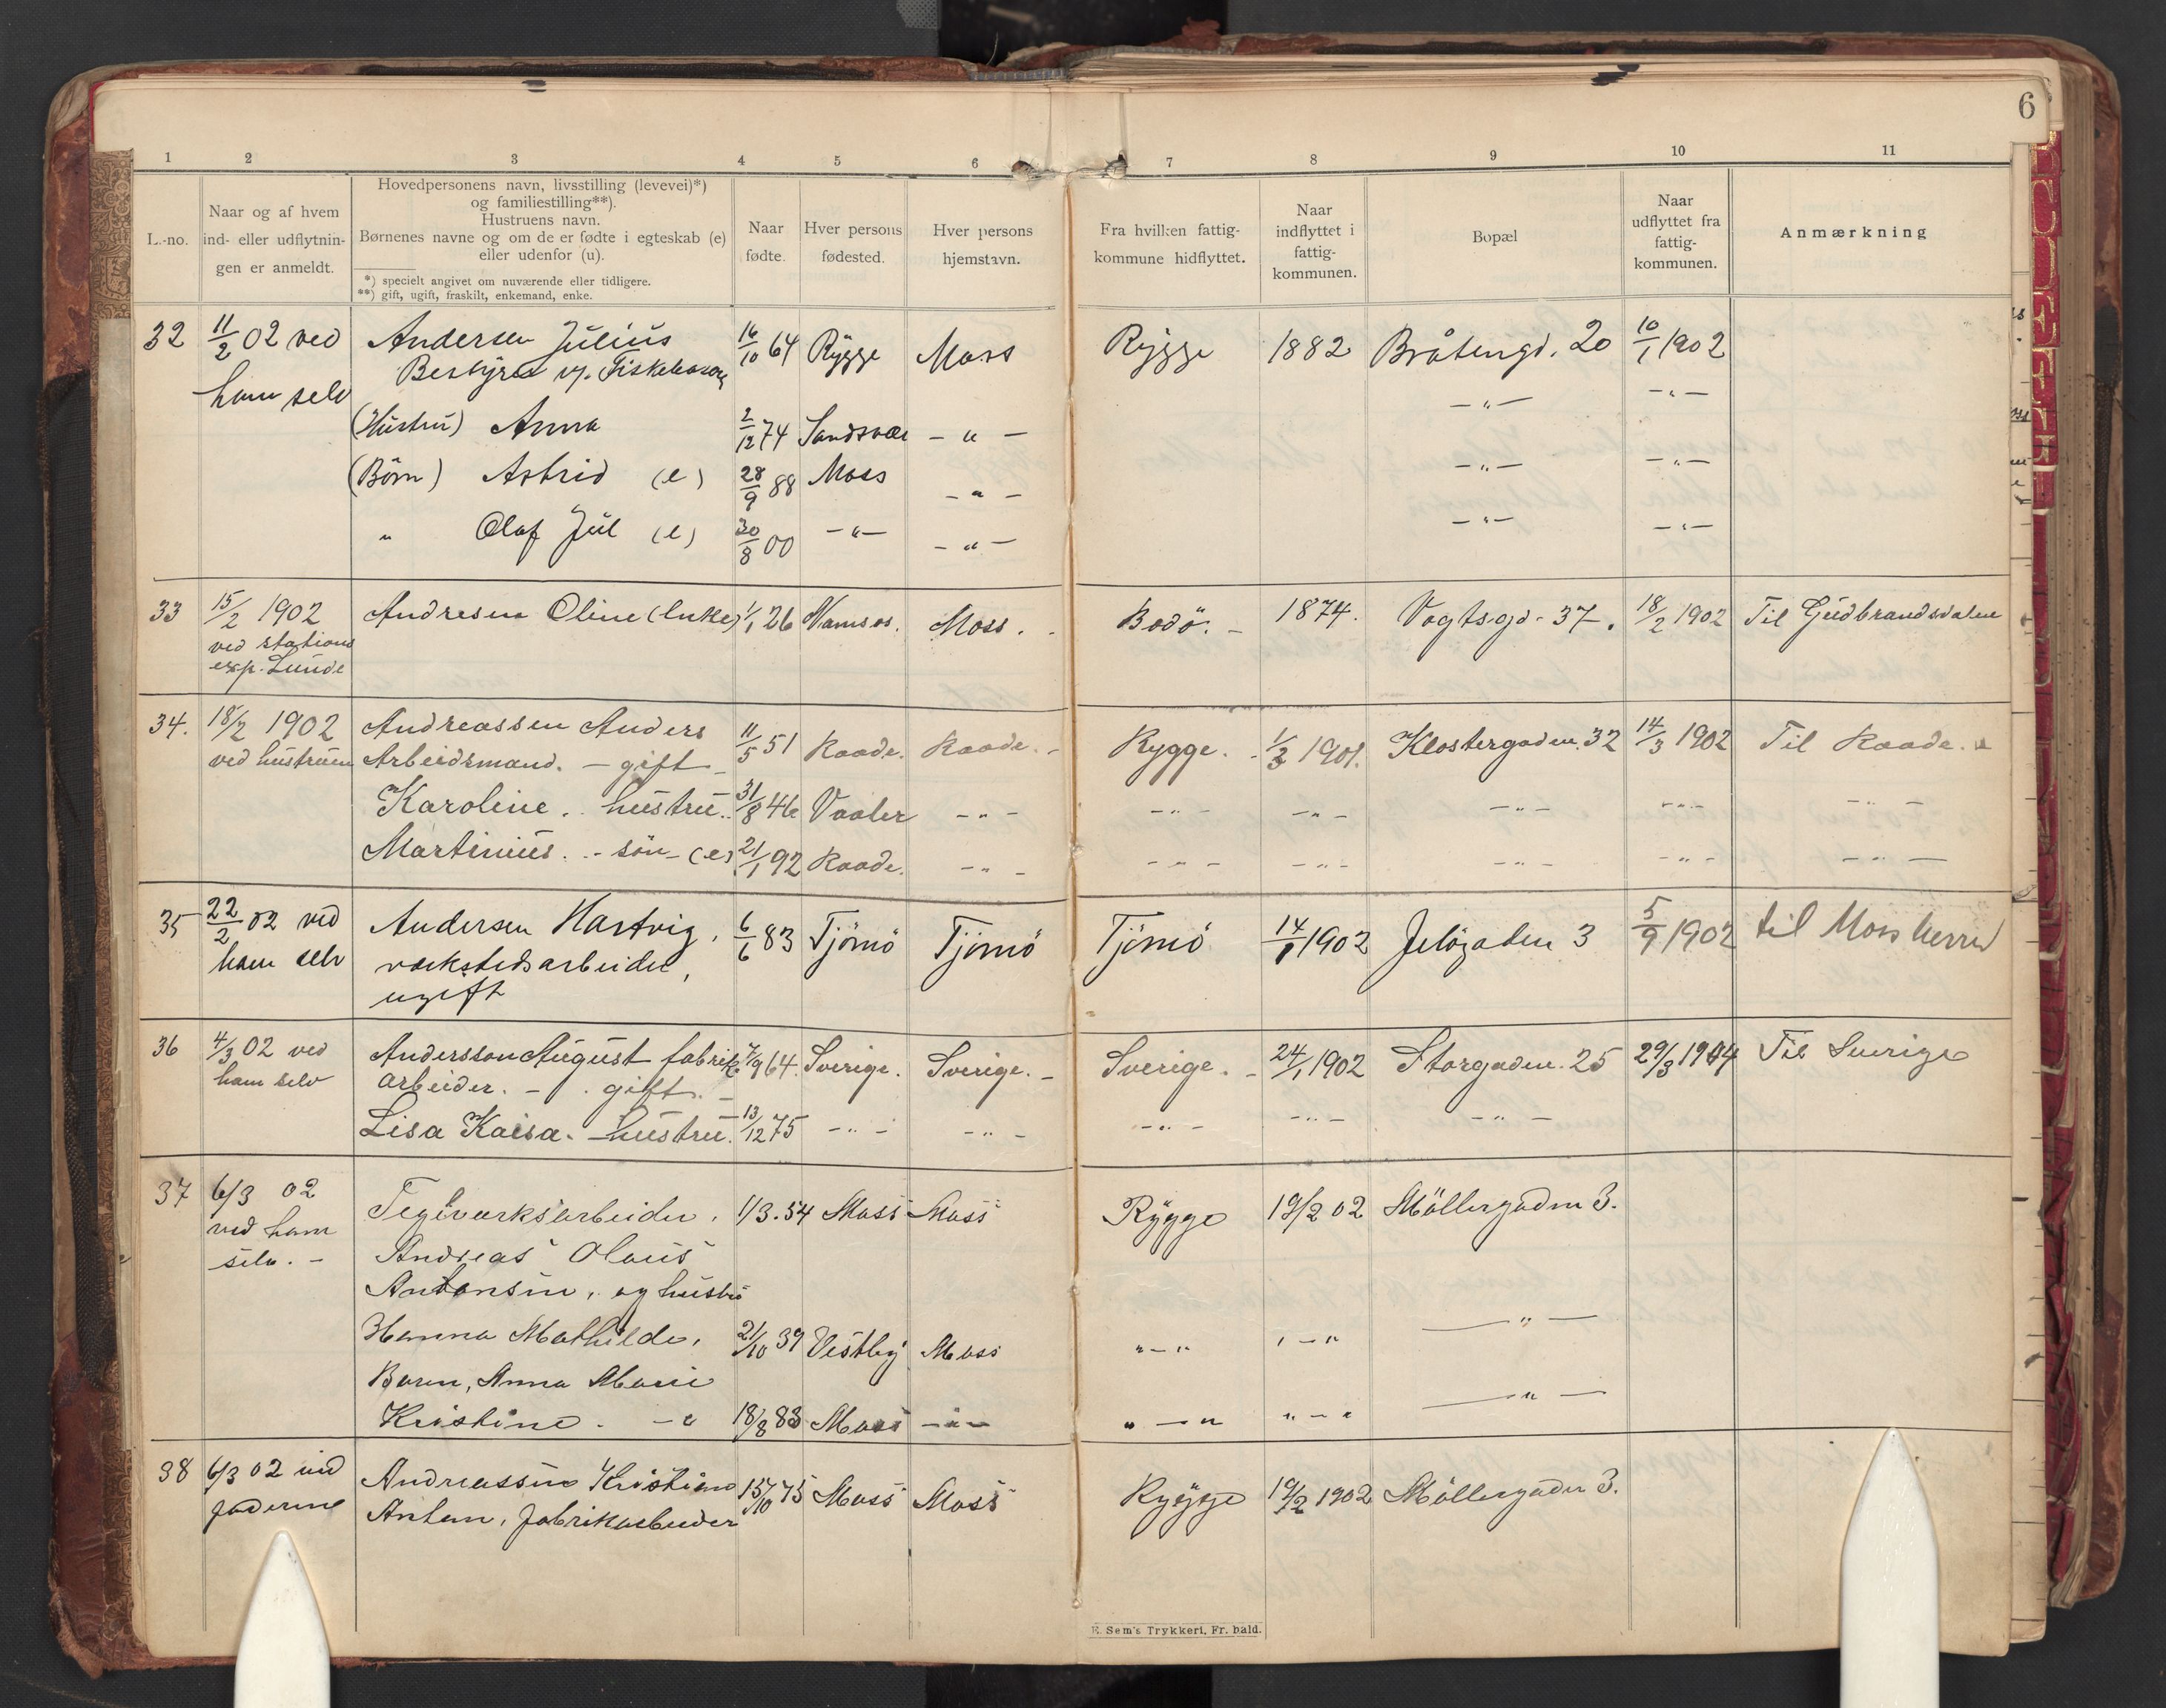 6
1 2 3 4 5 6 7 8 9 10 11
L.-no.
Naar og af hvem
ind- eller udflytnin-
gen er anmeldt.
Hovedpersonens navn, livsstilling (levevei)*)
og familiestilling**).
Hustruens navn.
Børnenes navne og om de er fødte i egteskab (e)
eller udenfor (u).
*) specielt angivet om nuværende eller tidligere.
**) gift, ugift, fraskilt, enkemand, enke.
Naar
fødte.
Hver persons
fødested.
Hver persons
hjemstavn.
Fra hvilken fattig-
kommune hidflyttet.
Naar
indflyttet i
fattig-
kommunen.
Bopæl
Naar
udflyttet fra
fattig-
kommunen.
Anmærkning
32 11/2 02 ved Andersen Julius 16/10 64 Rygge Moss Rygge 1882 Bråtengd. 20 10/1 1902
ham selv Bestyrer
(Hustru) Anna 2/12 74 Sandsvær - " - - " - - " -
(Börn) Astrid (e) 28/9 88 Moss - " - - " - - " -
" Olaf Jul (e) 30/8 00 - " - - " - - " - - " -
33 15/2 1902 Andresen Oline (enke) 1/1 26 Namsos. Moss. Bodö. - 1874. Vogtsgd. 37. 18/2 1902 Til Gudbrandsdalen
ved stations
exp. Lunde
34. 18/2 1902 Andreassen Anders 11/5 51 Raade. Raade. - Rygge. - 1/3 1901. Klostergaden. 32 14/3 1902 Til Raade.
ved hustruen Arbeidsmand. - gift -
Karoline. hustru. 31/8 46 Vaaler - " - - " - - " - - " - - " - - " -
Martinius. - sön - (e) 21/1 92 Raade. - " - - " - - " - - " - - " - - " -
35 22/2 02 ved Andersen Hartvig, 6/6 83 Tjömö Tjömö Tjömö 14/1 1902 Jelögaden 3 5/9 1902 til Moss herred
ham selv værkstedsarbeider,
ugift
36 4/3 02 ved Andersson August fabrik 7/9 64. Sverige. Sverige. - Sverige. - 24/1 1902 Storgaden. 25 29/3 1904 Til Sverige
ham selv arbeider. - gift. -
Lisa Kaisa. - hustru. 13/12 75 - " - - " - - " - - " - - " -
37 6/3 02 Teglværksarbeider, 1/3.54 Moss Moss Rygge 19/2 02 Möllergaden 3.
ved ham Andreas Olaus
selv. - Antonsen, og hustru
Hanna Mathilde, 21/10 39 Vestby Moss " - " " - " - " -
Barn, Anna Marie
Kristine. - " 18/8 83 Moss - " - " - " " - " - " -
38 6/3 02 ved Andreassen Kristian 15/10 75 Moss Moss Rygge 19/2 1902 Möllergaden 3.
faderen Anton, fabrikarbeider
E. Sem's Trykkeri, Fr. hald.